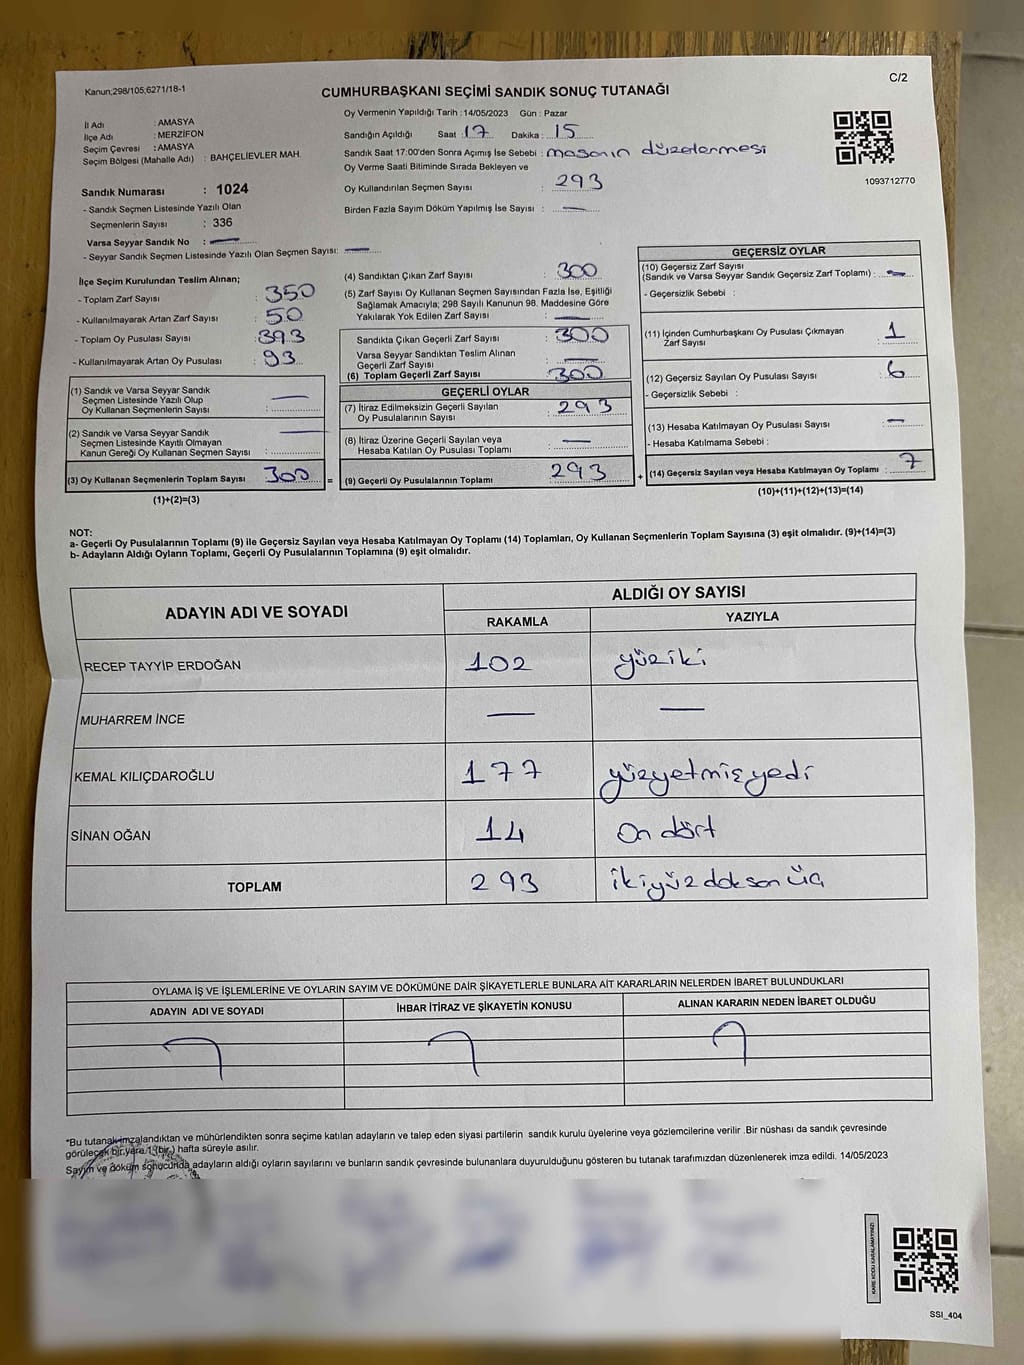 Kanun;298/105;6271/18-1
C/2
CUMHURBAŞKANI SEÇİMİ SANDIK SONUÇ TUTANAĞI
İl Adı : AMASYA
İlçe Adı : MERZİFON
Seçim Çevresi : AMASYA
Seçim Bölgesi (Mahalle Adı) : BAHÇELİEVLER MAH.
Sandık Numarası : 1024
- Sandık Seçmen Listesinde Yazılı Olan
Seçmenlerin Sayısı : 336
Varsa Seyyar Sandık No : —
- Seyyar Sandık Seçmen Listesinde Yazılı Olan Seçmen Sayısı: —
Oy Vermenin Yapıldığı Tarih :14/05/2023 Gün : Pazar
Sandığın Açıldığı Saat : 17 Dakika : 15
Sandık Saat 17:00'den Sonra Açımış İse Sebebi : masanın düzelenmesi
Oy Verme Saati Bitiminde Sırada Bekleyen ve
Oy Kullandırılan Seçmen Sayısı : 293
Birden Fazla Sayım Döküm Yapılmış İse Sayısı : —
1093712770
İlçe Seçim Kurulundan Teslim Alınan;
- Toplam Zarf Sayısı : 350
- Kullanılmayarak Artan Zarf Sayısı : 50
- Toplam Oy Pusulası Sayısı : 393
- Kullanılmayarak Artan Oy Pusulası : 93
(1) Sandık ve Varsa Seyyar Sandık
Seçmen Listesinde Yazılı Olup
Oy Kullanan Seçmenlerin Sayısı : —
(2) Sandık ve Varsa Seyyar Sandık
Seçmen Listesinde Kayıtlı Olmayan
Kanun Gereği Oy Kullanan Seçmen Sayısı : —
(3) Oy Kullanan Seçmenlerin Toplam Sayısı : 300 =
(1)+(2)=(3)
(4) Sandıktan Çıkan Zarf Sayısı : 300
(5) Zarf Sayısı Oy Kullanan Seçmen Sayısından Fazla İse, Eşitliği
Sağlamak Amacıyla; 298 Sayılı Kanunun 98. Maddesine Göre
Yakılarak Yok Edilen Zarf Sayısı : —
Sandıkta Çıkan Geçerli Zarf Sayısı : 300
Varsa Seyyar Sandıktan Teslim Alınan
Geçerli Zarf Sayısı : —
(6) Toplam Geçerli Zarf Sayısı : 300
GEÇERLİ OYLAR
(7) İtiraz Edilmeksizin Geçerli Sayılan
Oy Pusulalarının Sayısı : 293
(8) İtiraz Üzerine Geçerli Sayılan veya
Hesaba Katılan Oy Pusulası Toplamı : —
(9) Geçerli Oy Pusulalarının Toplamı : 293 +
GEÇERSİZ OYLAR
(10) Geçersiz Zarf Sayısı
(Sandık ve Varsa Seyyar Sandık Geçersiz Zarf Toplamı) : —
- Geçersizlik Sebebi :
(11) İçinden Cumhurbaşkanı Oy Pusulası Çıkmayan
Zarf Sayısı : 1
(12) Geçersiz Sayılan Oy Pusulası Sayısı : 6
- Geçersizlik Sebebi :
(13) Hesaba Katılmayan Oy Pusulası Sayısı : —
- Hesaba Katılmama Sebebi :
(14) Geçersiz Sayılan veya Hesaba Katılmayan Oy Toplamı : 7
(10)+(11)+(12)+(13)=(14)
NOT:
a- Geçerli Oy Pusulalarının Toplamı (9) ile Geçersiz Sayılan veya Hesaba Katılmayan Oy Toplamı (14) Toplamları, Oy Kullanan Seçmenlerin Toplam Sayısına (3) eşit olmalıdır. (9)+(14)=(3)
b- Adayların Aldığı Oyların Toplamı, Geçerli Oy Pusulalarının Toplamına (9) eşit olmalıdır.
ADAYIN ADI VE SOYADI
ALDIĞI OY SAYISI
RAKAMLA YAZIYLA
RECEP TAYYİP ERDOĞAN 102 yüziki
MUHARREM İNCE — —
KEMAL KILIÇDAROĞLU 177 yüzyetmişyedi
SİNAN OĞAN 14 On dört
TOPLAM 293 ikiyüz doksan üç
OYLAMA İŞ VE İŞLEMLERİNE VE OYLARIN SAYIM VE DÖKÜMÜNE DAİR ŞİKAYETLERLE BUNLARA AİT KARARLARIN NELERDEN İBARET BULUNDUKLARI
ADAYIN ADI VE SOYADI İHBAR İTİRAZ VE ŞİKAYETİN KONUSU ALINAN KARARIN NEDEN İBARET OLDUĞU
*Bu tutanak imzalandıktan ve mühürlendikten sonra seçime katılan adayların ve talep eden siyasi partilerin sandık kurulu üyelerine veya gözlemcilerine verilir .Bir nüshası da sandık çevresinde
görülecek bir yere 1 (bir) hafta süreyle asılır.
Sayım ve döküm sonucunda adayların aldığı oyların sayılarını ve bunların sandık çevresinde bulunanlara duyurulduğunu gösteren bu tutanak tarafımızdan düzenlenerek imza edildi. 14/05/2023
KARE KODU KARALAMAYINIZ!
SSI_404